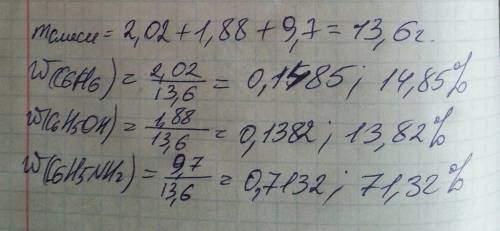 mсмеси = 2,02 + 1,88 + 9,7 = 13,6 г.
W(C6H6) = 2,02/13,6 = 0,1485; 14,85%
W(C6H5OH) = 1,88/13,6 = 0,1382; 13,82%
W(C6H5NH2) = 9,7/13,6 = 0,7132; 71,32%